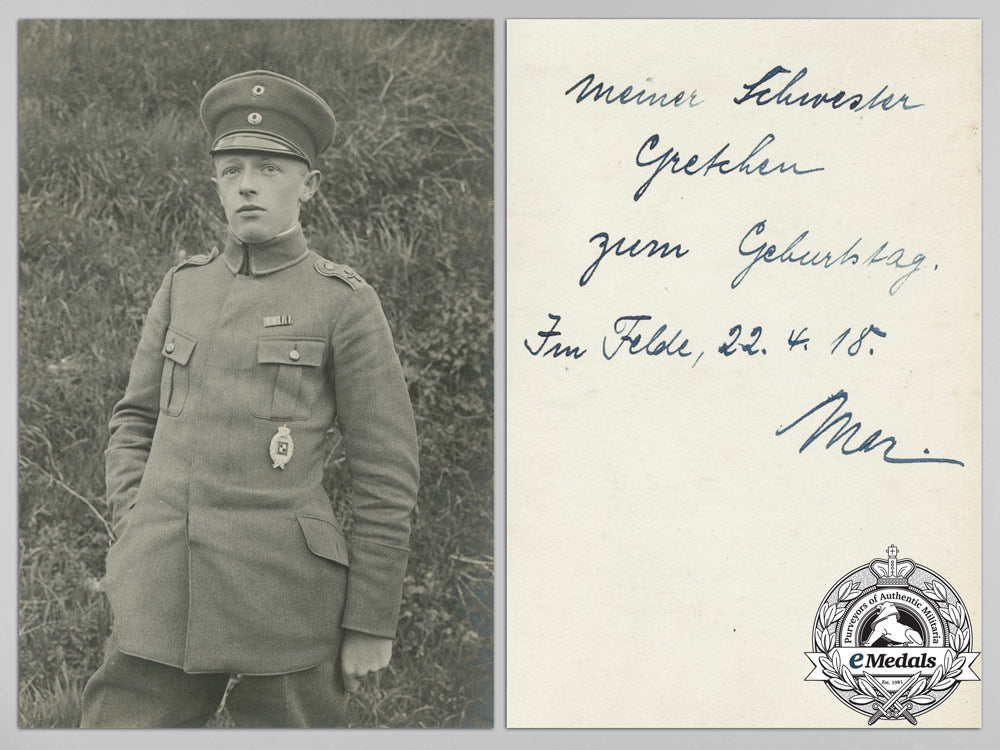 meiner Schwester
Gretchen
zum Geburtstag.
Im Felde, 22. 4. 18.
Max.
Purveyors of Authentic Militaria
eMedals
Est. 1981